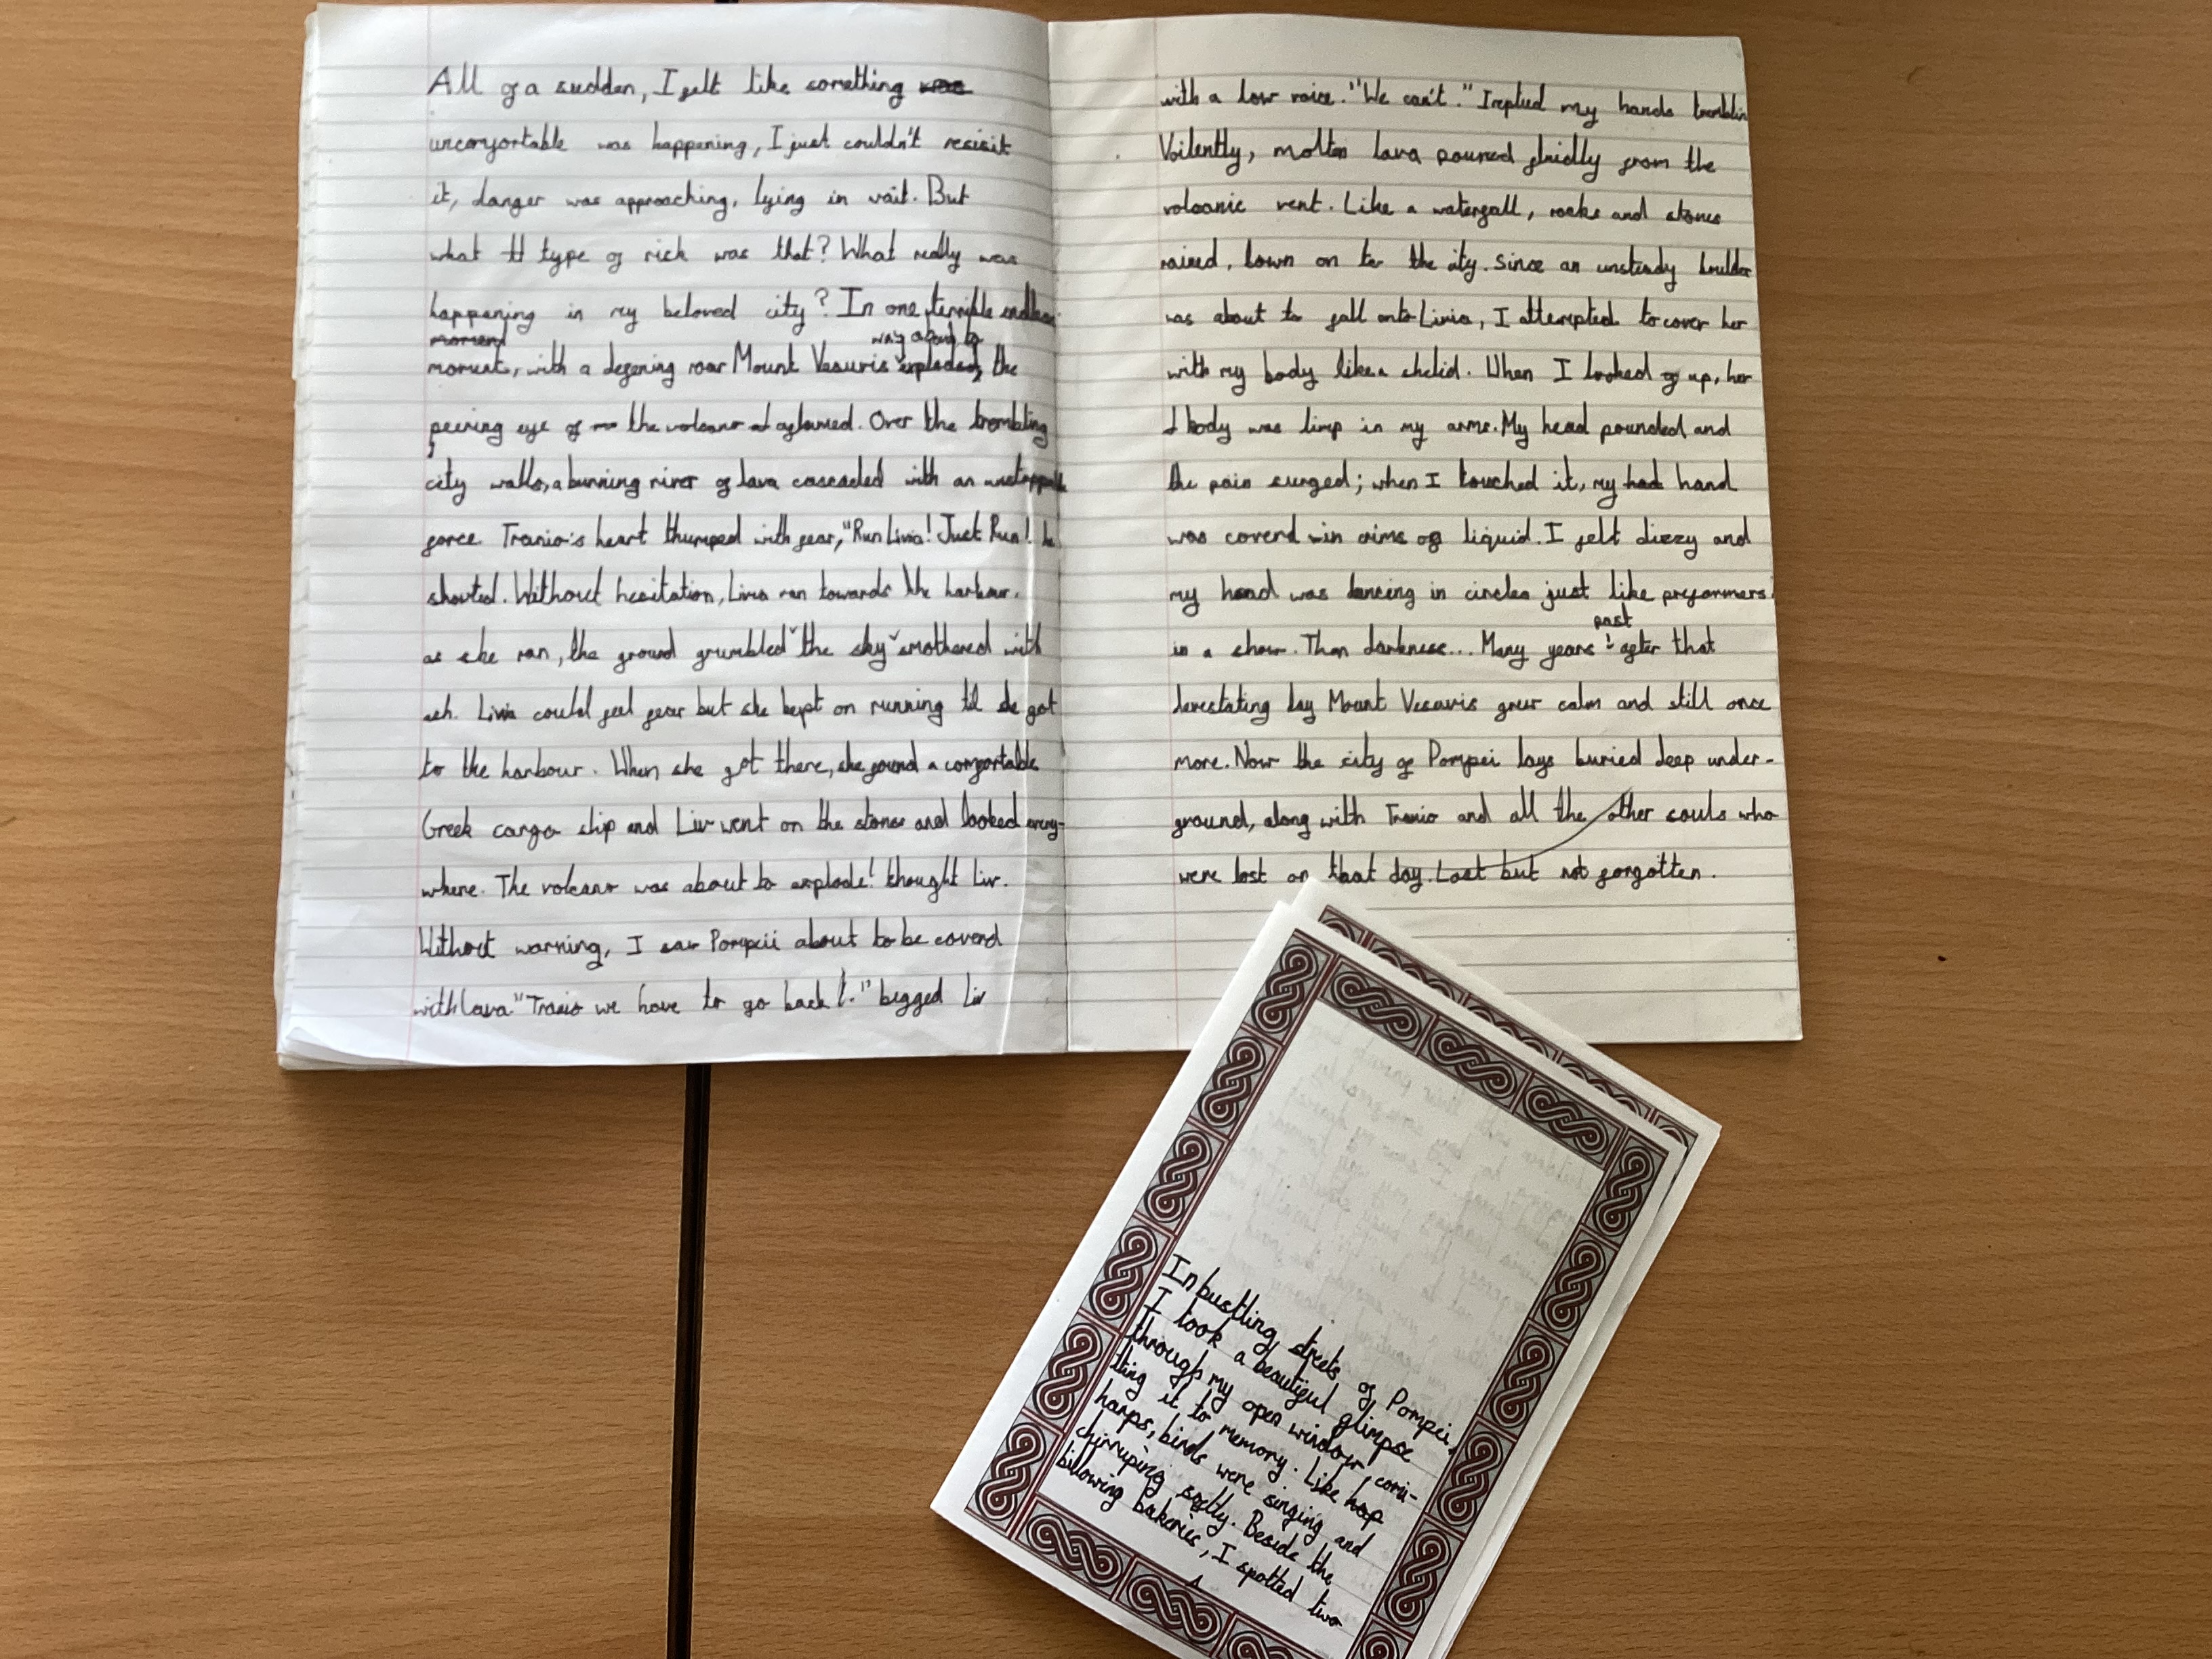 All of a sudden, I felt like something
uncomfortable was happening, I just couldn't resisit
it, danger was approaching, lying in wait. But
what tt type of rick was that? What really was
happening in my beloved city? In one terrible endless
moment
was about to
moment, with a defening roar Mount Vesuvis exploded, the
peering eye of the volcano aflamed. Over the trembling
city walls, a burning river of lava cascaded with an unstoppable
force. Tranio's heart thumped with fear, "Run Livia! Just Run! he
shouted. Without hesitation, Livia ran towards the harbour.
as she ran, the ground grumbled the sky smothered with
ash. Livia could feel fear but she kept on running til she got
to the harbour. When she got there, she found a comfortable
Greek cargo ship and Liv went on the stones and looked every-
where. The volcano was about to explode! thought Liv.
Without warning, I saw Pompeii about to be coverd
with lava "Tranio we have to go back!." begged Liv
with a low voice. "We can't." I replied my hands tremblin
Voilently, molten lava poured fluidly from the
volcanic vent. Like a waterfall, rocks and stones
rained, down on to the city. Since an unsteady boulder
was about to fall onto Livia, I attempted to cover her
with my body like a sheild. When I looked up, her
body was limp in my arms. My head pounded and
the pain surged; when I touched it, my had hand
was coverd in of liquid. I felt dizzy and
my head was dancing in circles just like preformers
past
in a show. Than darkness... Many years after that
devestating day Mount Vesuvis grew calm and still once
more. Now the city of Pompei lays buried deep under-
ground, along with Tranio and all the other souls who
were lost on that day. Lost but not forgotten.
In bustling streets of Pompei,
I took a beautiful glimpse
through my open window, comi-
tting it to memory. Like hap
harps, birds were singing and
chirruping softly. Beside the
billowing bakeries, I spotted two